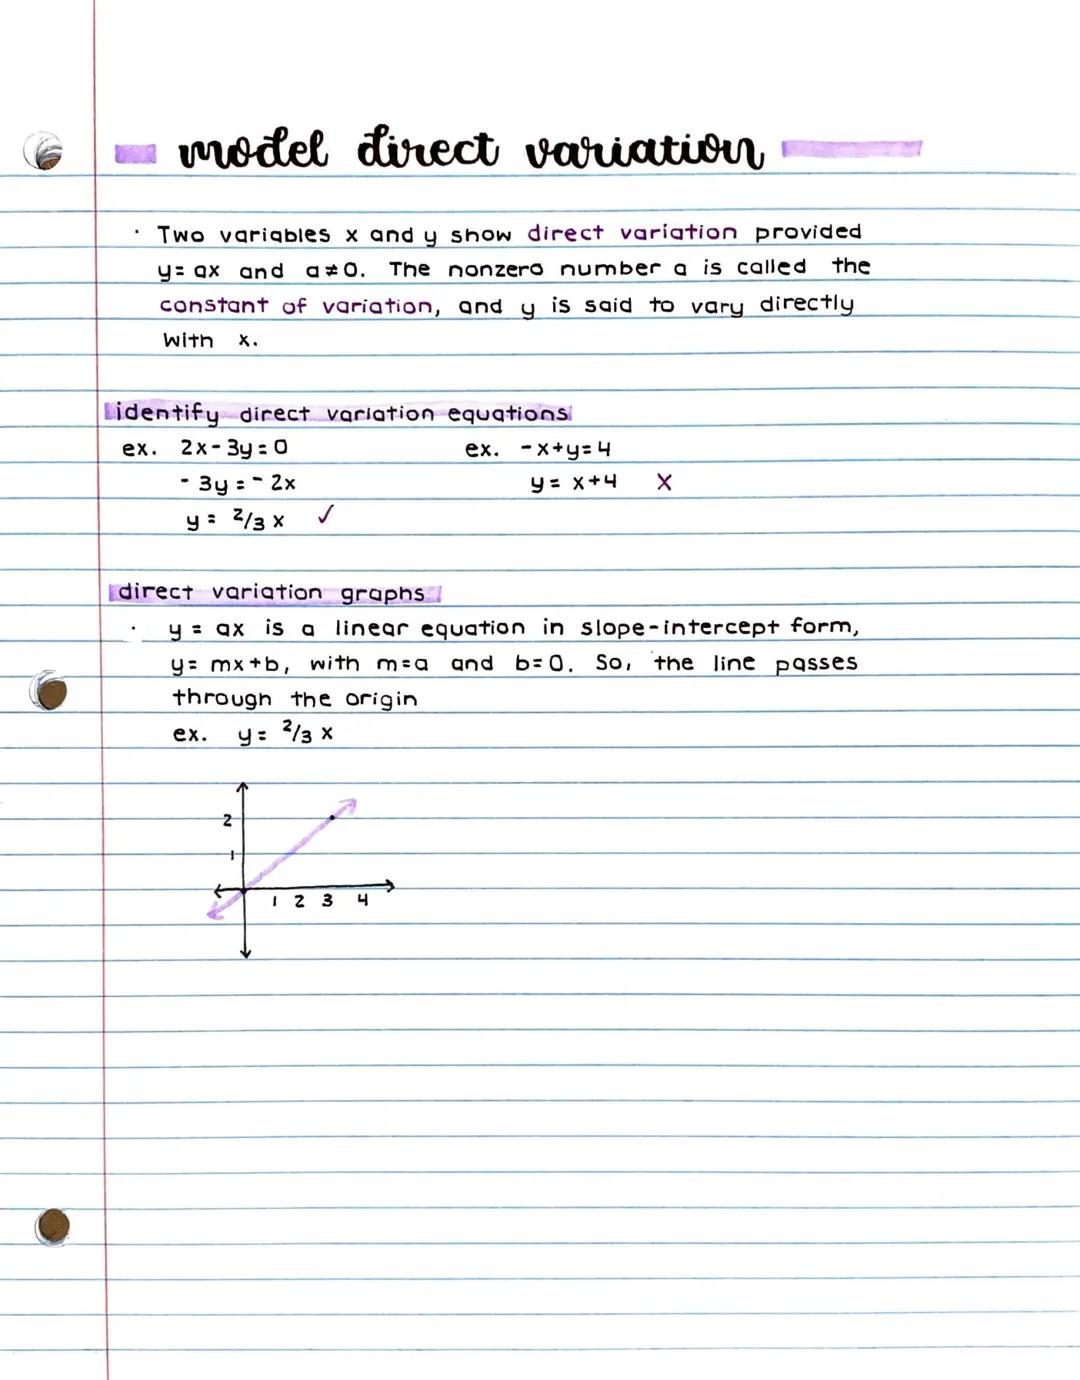 model direct variation
· Two variables x and y show direct variation provided
y= ax and a≠0. The nonzero number a is called the
constant of variation, and y is said to vary directly
with x.
identify direct variation equations
ex. 2x-3y=0
-3y=-2x
y= 2/3 x ✓
ex. -x+y=4
y= x+4 X
direct variation graphs
· y= ax is a linear equation in slope-intercept form,
y= mx+b, with m=a and b=0. So, the line passes
through the origin
ex. y= 2/3 x
2
1
1 2 3 4